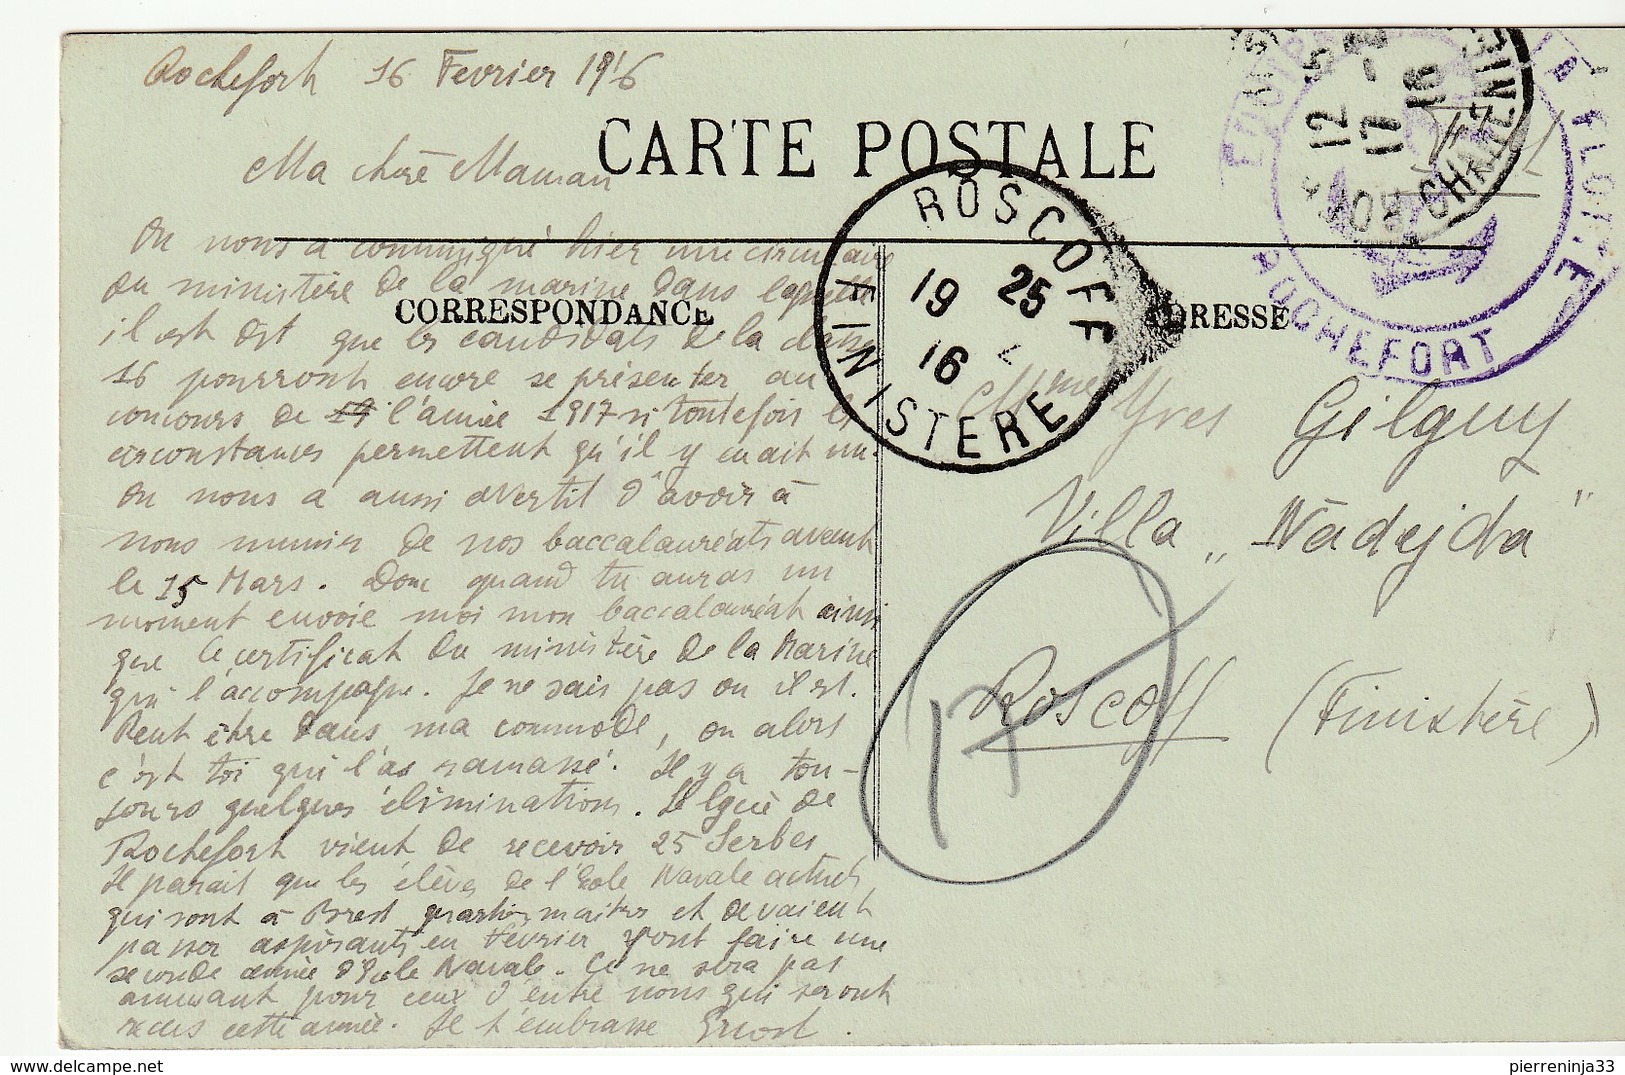 Rochefort 16 Fevrier 1916
CARTE POSTALE
Ma chère Maman
On nous a communiqué hier une circulaire
du ministère de la marine dans laquelle
CORRESPONDANCE
ADRESSE
il est dit que les candidats de la classe
16 pourront encore se présenter au
concours de l'année 1917 si toutefois les
circonstances permettent qu'il y en ait un.
On nous a aussi avertit d'avoir à
nous munir de nos baccalauréats avant
le 15 Mars. Donc quand tu auras un
moment envoie moi mon baccalauréat ainsi
que le certificat du ministère de la Marine
qui l'accompagne. Je ne sais pas ou il est.
Peut être dans ma commode, ou alors
c'est toi qui l'as ramassé. Il y a tou-
jours quelques éliminations. Le lycée de
Rochefort vient de recevoir 25 Serbes
Il parait que les élèves de l'Ecole Navale actuels
qui sont à Brest quartiers maitres et devaient
passer aspirants en février vont faire une
seconde année d'Ecole Navale. Ce ne sera pas
amusant pour ceux d'entre nous qui seront
recus cette année. Je t'embrasse Ernest.
Mme Yves Gilguy
Villa „Nadejda"
Roscoff (Finistère)
17
ROSCOFF
19 25
16 2
FINISTERE
12
17 - 2
16
ROCHEFORT
FLOTTE
pierreninja33